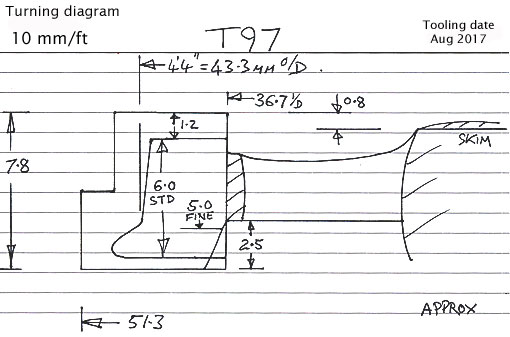 Turning diagram
10 mm/ft
T97
Tooling date
Aug 2017
4'4" = 43.3 MM O/D.
36.7 I/D
0.8
1.2
SKIM
7.8
6.0
STD
5.0
FINE
2.5
APPROX
51.3